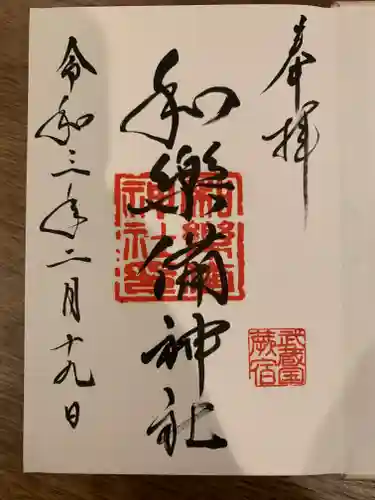 奉拝
武蔵国
蕨宿
和樂備神社
和樂備
神社璽
令和三年二月十九日